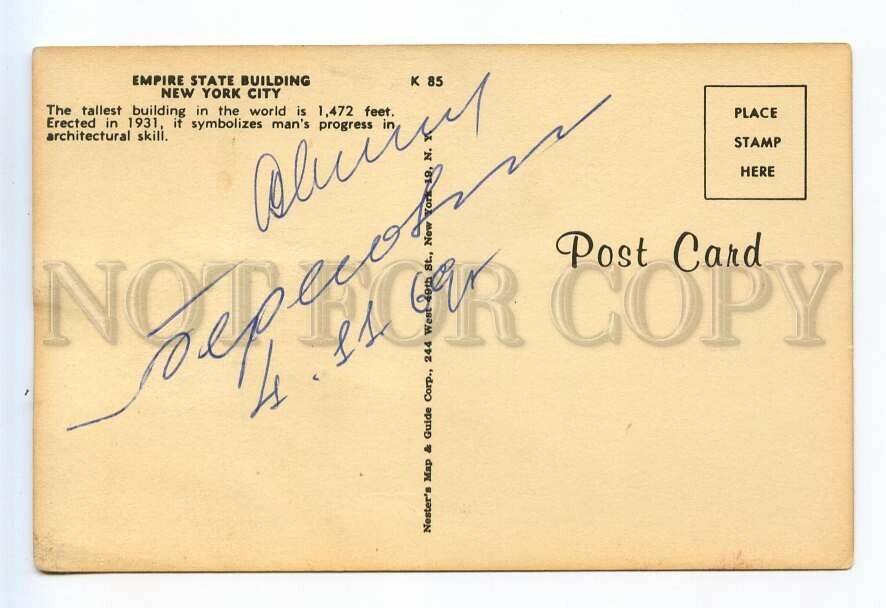 EMPIRE STATE BUILDING
NEW YORK CITY
The tallest building in the world is 1,472 feet.
Erected in 1931, it symbolizes man's progress in
architectural skill.
K 85
PLACE
STAMP
HERE
Post Card
4. 11 69г
Nester's Map & Guide Corp., 244 West 49th St., New York 19, N. Y.
NOT FOR COPY